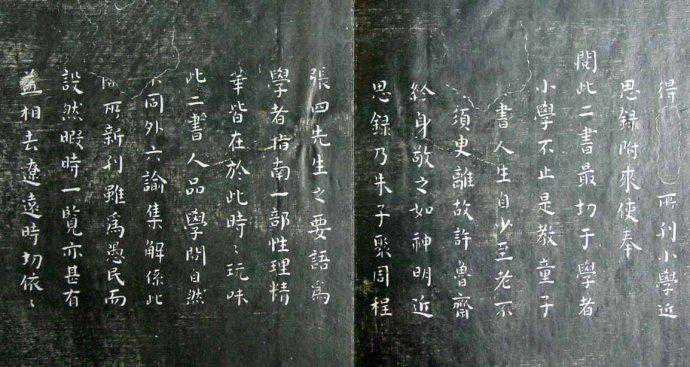 得 所刊小學近
思録附來使奉
閱此二書最切于學者
小學不止是教童子
書人生自少至老不
須臾離故許魯齋
終身敬之如神明近
思録乃朱子聚周程
張四先生之要語為
學者指南一部性理精
華皆在於此時〻玩味
此二書人品學問自然
不同外六諭集解係此
所新刊雖為愚民而
設然暇時一覽亦甚有
益相去遼遠時切依〻